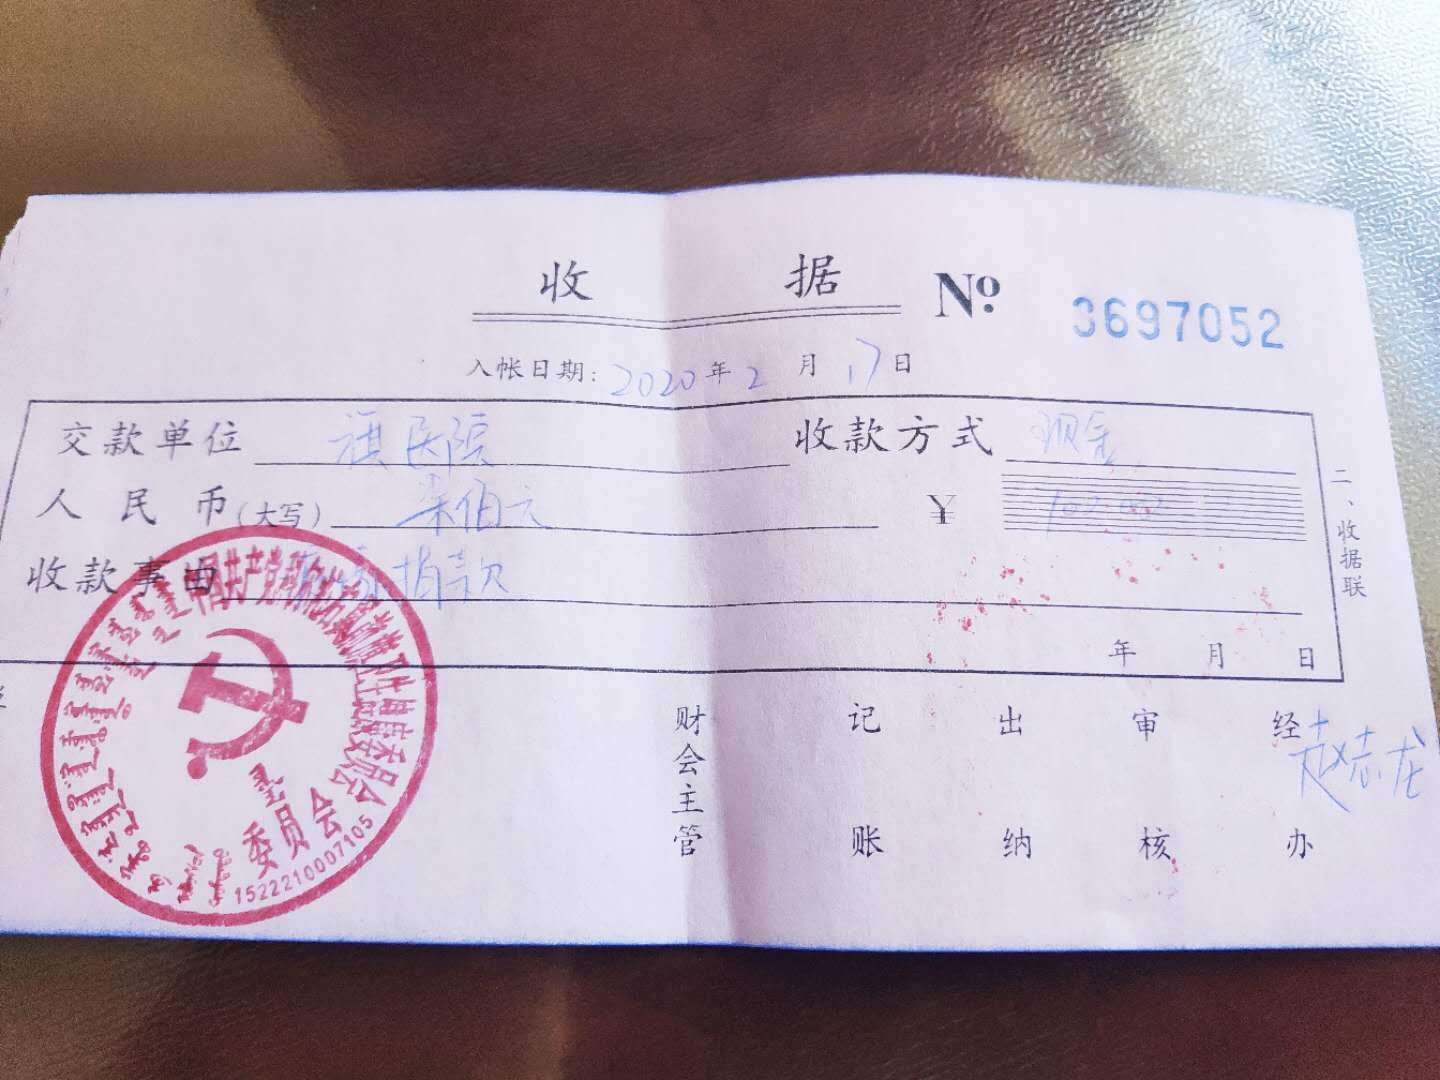 收 据 Nº 3697052
入帐日期: 2020年2月17日
交款单位 旗医院 收款方式 现金
人民币(大写) 朱佰元 ¥
收款事由 捐款
年 月 日
二、收据联
财会主管 记账 出纳 审核 经办 赵志龙
中国共产党科尔沁右翼前旗卫生健康委员会
委员会
1522210007105